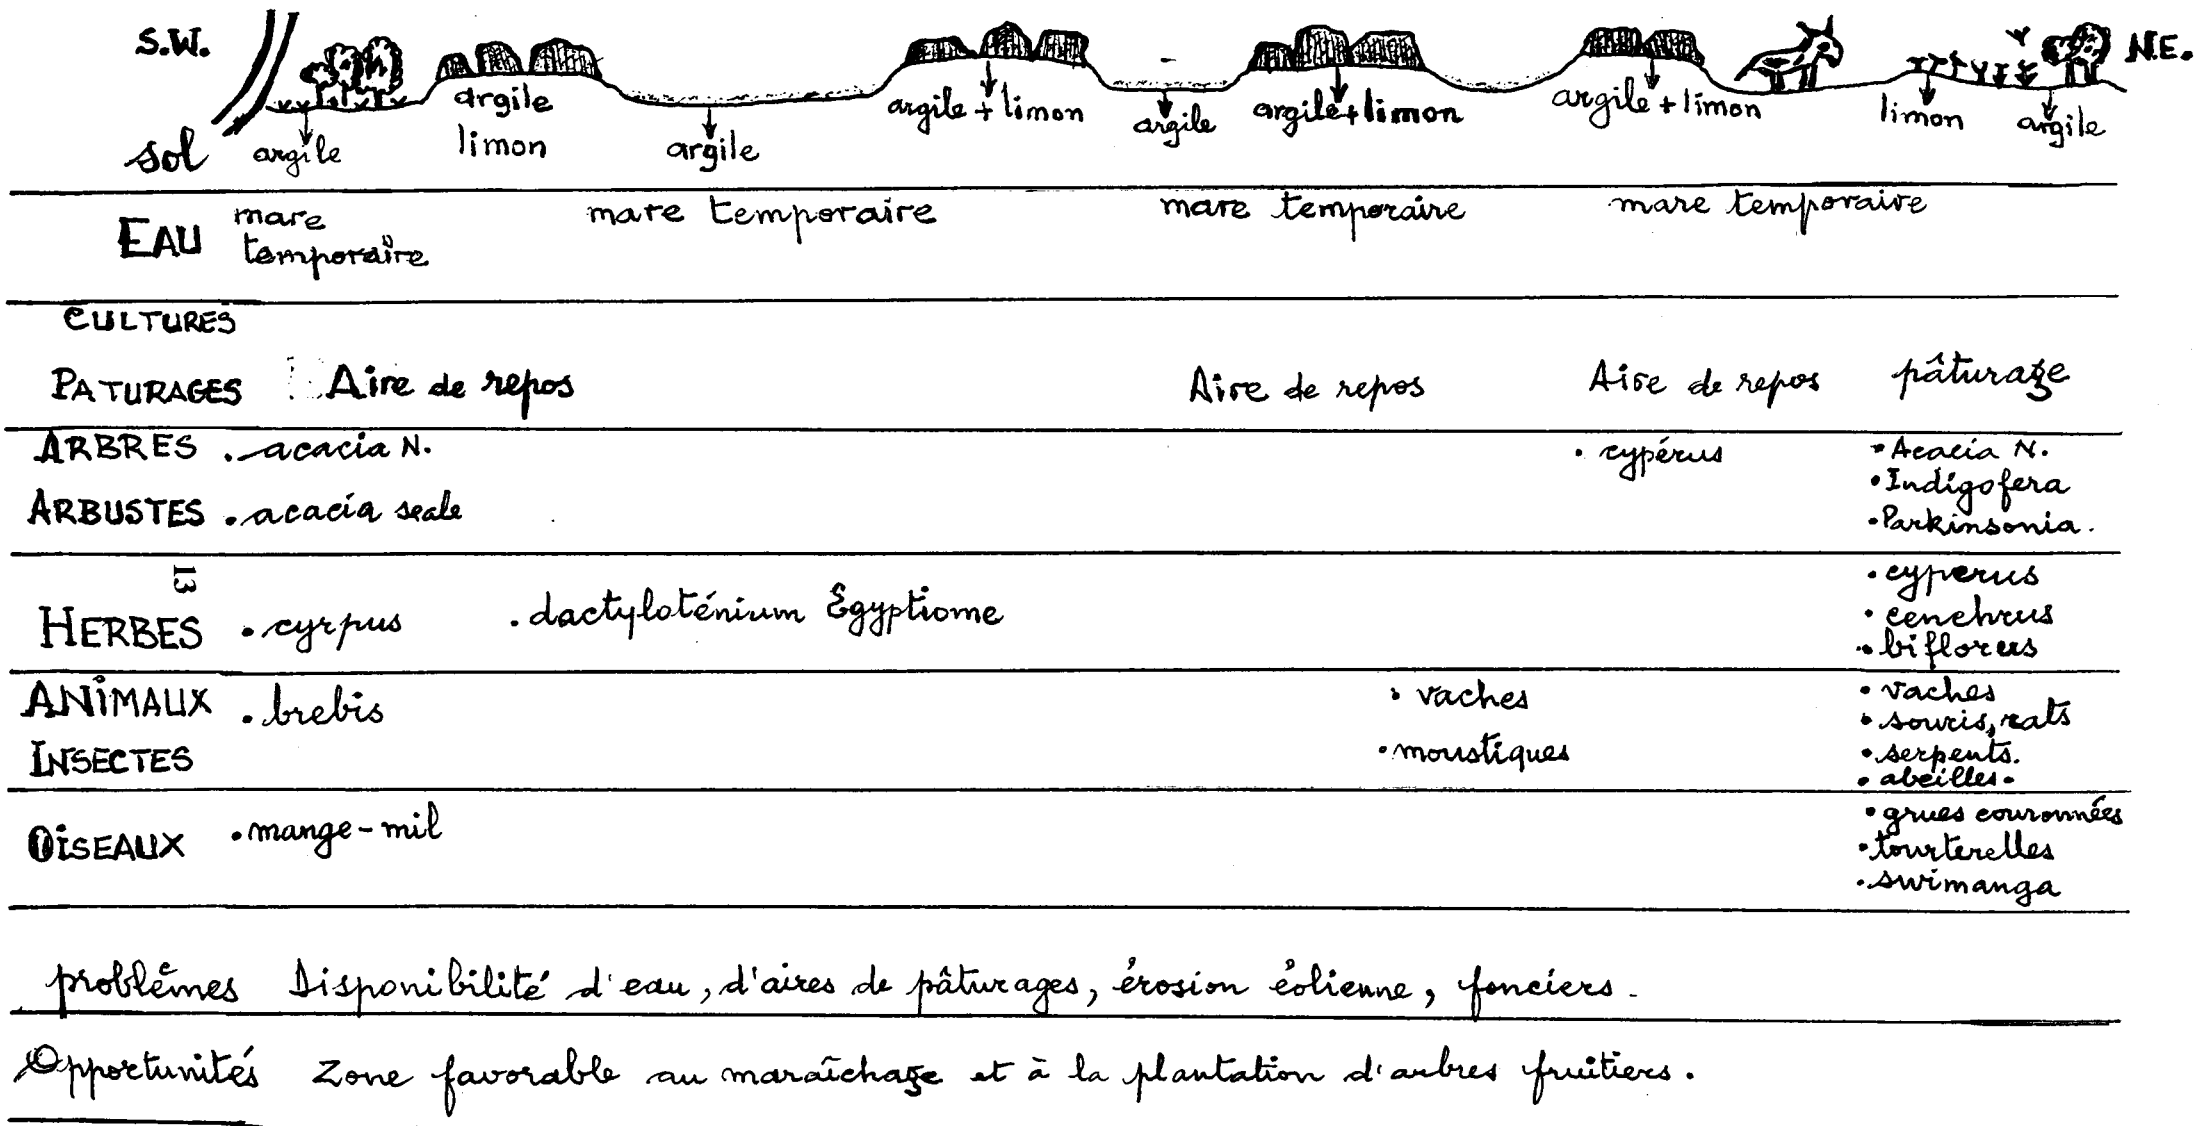 S.W. N.E.
sol argile argile limon argile argile + limon argile argile + limon argile + limon limon argile
EAU mare temporaire mare temporaire mare temporaire mare temporaire
CULTURES
PATURAGES Aire de repos Aire de repos Aire de repos pâturage
ARBRES • acacia N. • cypérus • Acacia N.
• Indigofera
ARBUSTES • acacia seale • Parkinsonia.
13
• cyperus
HERBES • cyrpus • dactyloténium Egyptiome • cenchrus
• biflorus
ANIMAUX • brebis • vaches • vaches
• souris, rats
INSECTES • moustiques • serpents.
• abeilles.
OISEAUX • mange-mil • grues couronnées
• tourterelles
• swimanga
problèmes Disponibilité d'eau, d'aires de pâturages, érosion éolienne, fonciers.
Opportunités Zone favorable au maraîchage et à la plantation d'arbres fruitiers.